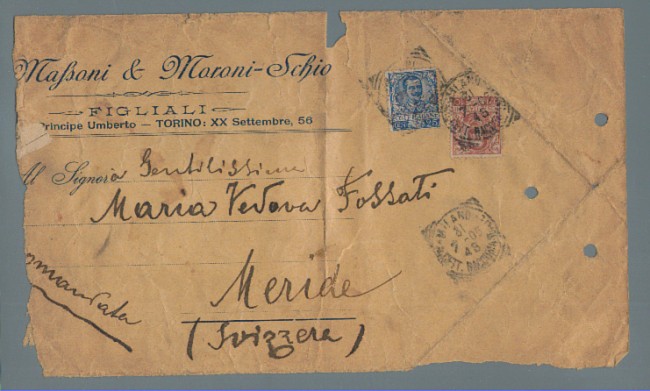 Maßoni & Moroni-Schio
FIGLIALI
Principe Umberto — TORINO: XX Settembre, 56
Al Signora Gentilissima
Maria Vedova Fossati
Meride
(Svizzera)
omandata
MILANO
31
05